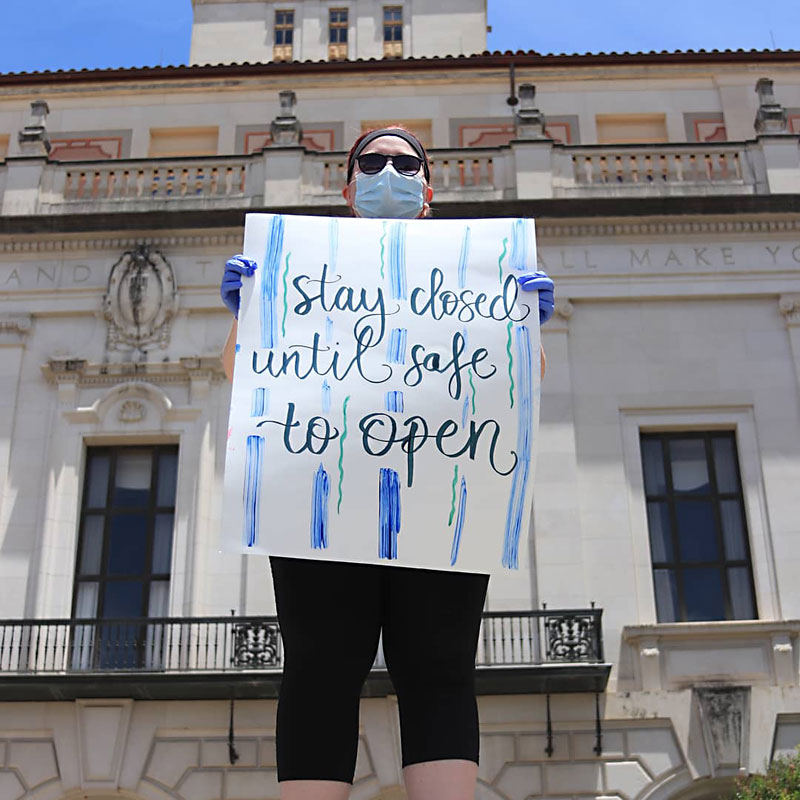 AND T ALL MAKE YO
stay closed
until safe
to open